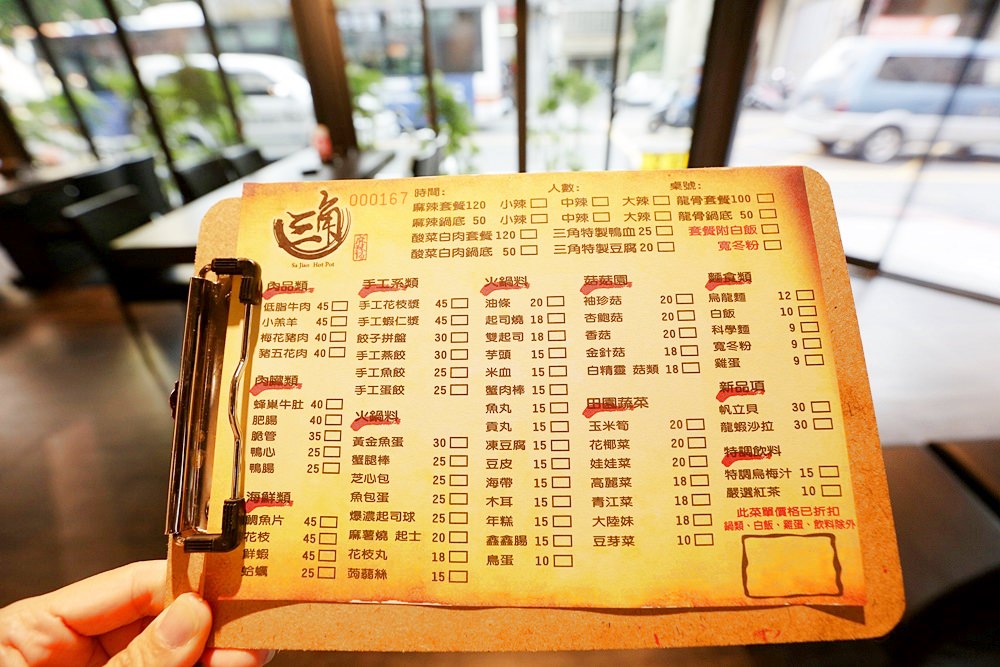 三角
Sa Jiao Hot Pot
000167
時間: 人數: 桌號:
麻辣套餐120 小辣 中辣 大辣 龍骨套餐100
麻辣鍋底 50 小辣 中辣 大辣 龍骨鍋底 50
酸菜白肉套餐120 三角特製鴨血25 套餐附白飯
酸菜白肉鍋底 50 三角特製豆腐20 寬冬粉
肉品類
低脂牛肉 45
小羔羊 45
梅花豬肉 40
豬五花肉 40
肉臟類
蜂巢牛肚 40
肥腸 40
脆管 35
鴨心 25
鴨腸 25
海鮮類
鯛魚片 45
花枝 45
鮮蝦 45
蛤蠣 25
手工系類
手工花枝漿 45
手工蝦仁漿 45
餃子拼盤 30
手工燕餃 30
手工魚餃 25
手工蛋餃 25
火鍋料
黃金魚蛋 30
蟹腿棒 25
芝心包 25
魚包蛋 25
爆濃起司球 25
麻薯燒 起士 20
花枝丸 18
蒟蒻絲 15
火鍋料
油條 20
起司燒 18
雙起司 18
芋頭 15
米血 15
蟹肉棒 15
魚丸 15
貢丸 15
凍豆腐 15
豆皮 15
海帶 15
木耳 15
年糕 15
鑫鑫腸 15
鳥蛋 10
菇菇園
袖珍菇 20
杏鮑菇 20
香菇 20
金針菇 18
白精靈 菇類 18
田園蔬菜
玉米筍 20
花椰菜 20
娃娃菜 20
高麗菜 18
青江菜 18
大陸妹 18
豆芽菜 10
麵食類
烏龍麵 12
白飯 10
科學麵 9
寬冬粉 9
雞蛋 9
新品項
帆立貝 30
龍蝦沙拉 30
特調飲料
特調烏梅汁 15
嚴選紅茶 10
此菜單價格已折扣
鍋類、白飯、雞蛋、飲料除外